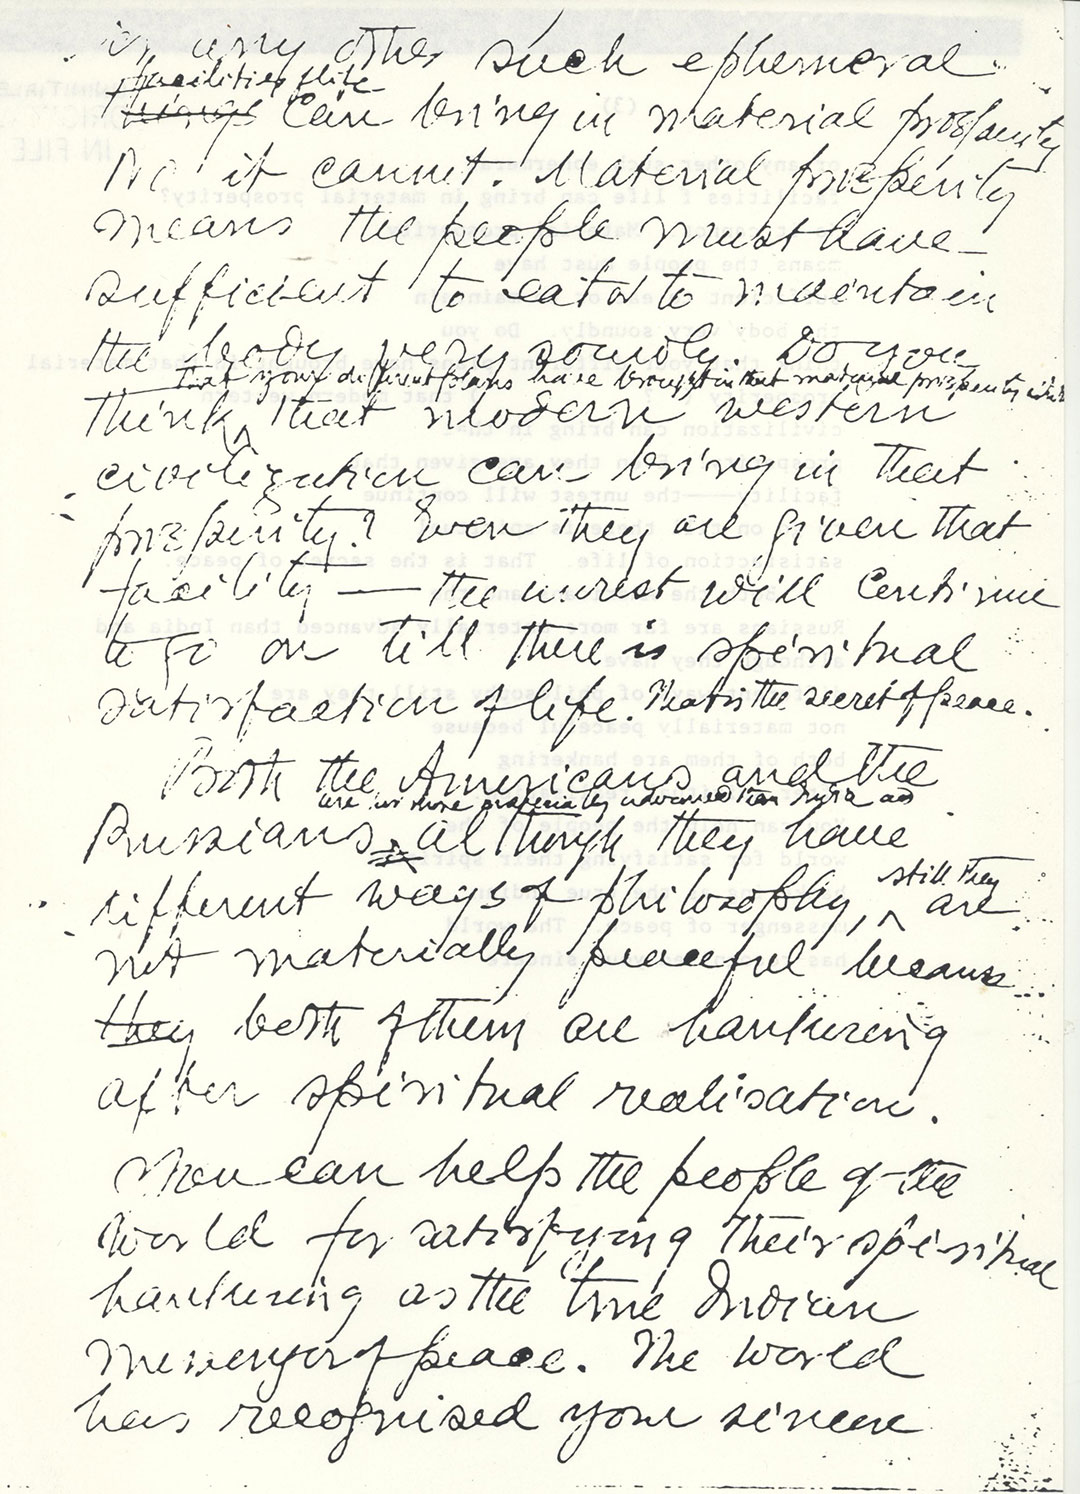 or any other such ephemeral
facilities of life
things can bring in material prosperity
No it cannot. Material prosperity
means the people must have
sufficient to eat or to maintain
the body very soundly. Do you
that your different plans have brought in that material prosperity
think that modern western
civilization can bring in that
prosperity? Even they are given that
facility — the unrest will continue
to go on till there is spiritual
satisfaction of life. That is the secret of peace.
Both the Americans and the
are far more materially advanced than India and
Russians although they have
still they
different ways of philosophy, are
not materially peaceful because
they both of them are hankering
after spiritual realisation.
You can help the people of the
world for satisfying their spiritual
hankering as the true Indian
messenger of peace. The world
has recognised your sincere